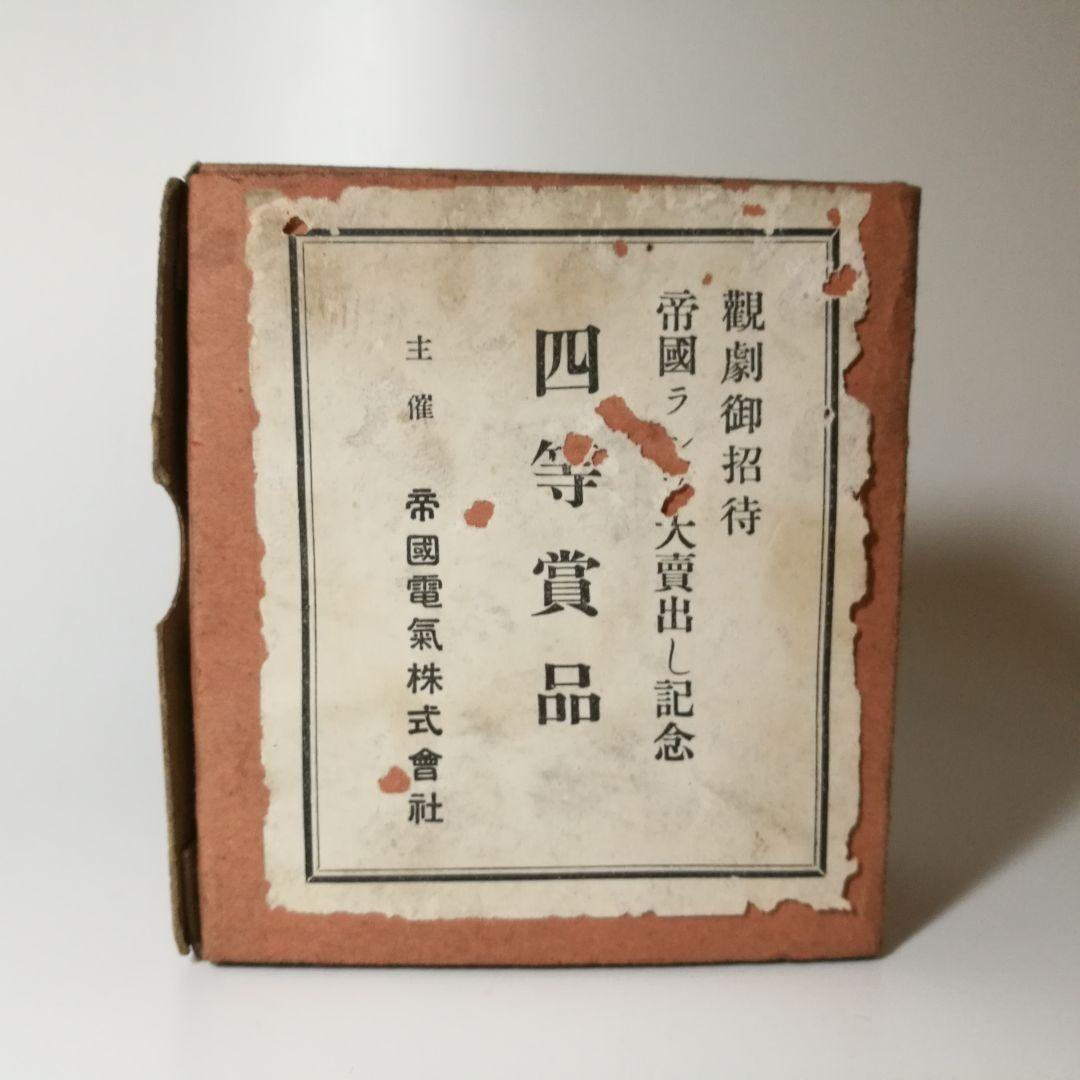 觀劇御招待
帝國ラン 大賣出し記念
四等賞品
主催 帝國電氣株式會社